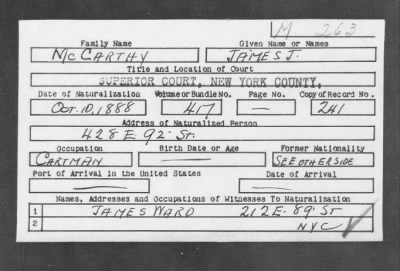 M 263
Family Name Given Name or Names
McCARTHY JAMES J.
Title and Location of Court
SUPERIOR COURT, NEW YORK COUNTY,
Date of Naturalization Volume or Bundle No. Page No. Copy of Record No.
OCT. 10, 1888 417 — 241
Address of Naturalized Person
428 E 92 St.
Occupation Birth Date or Age Former Nationality
CARTMAN — SEE OTHERSIDE
Port of Arrival in the United States Date of Arrival
— —
Names, Addresses and Occupations of Witnesses To Naturalization
1 JAMES WARD 212 E. 89. St
2 NYC